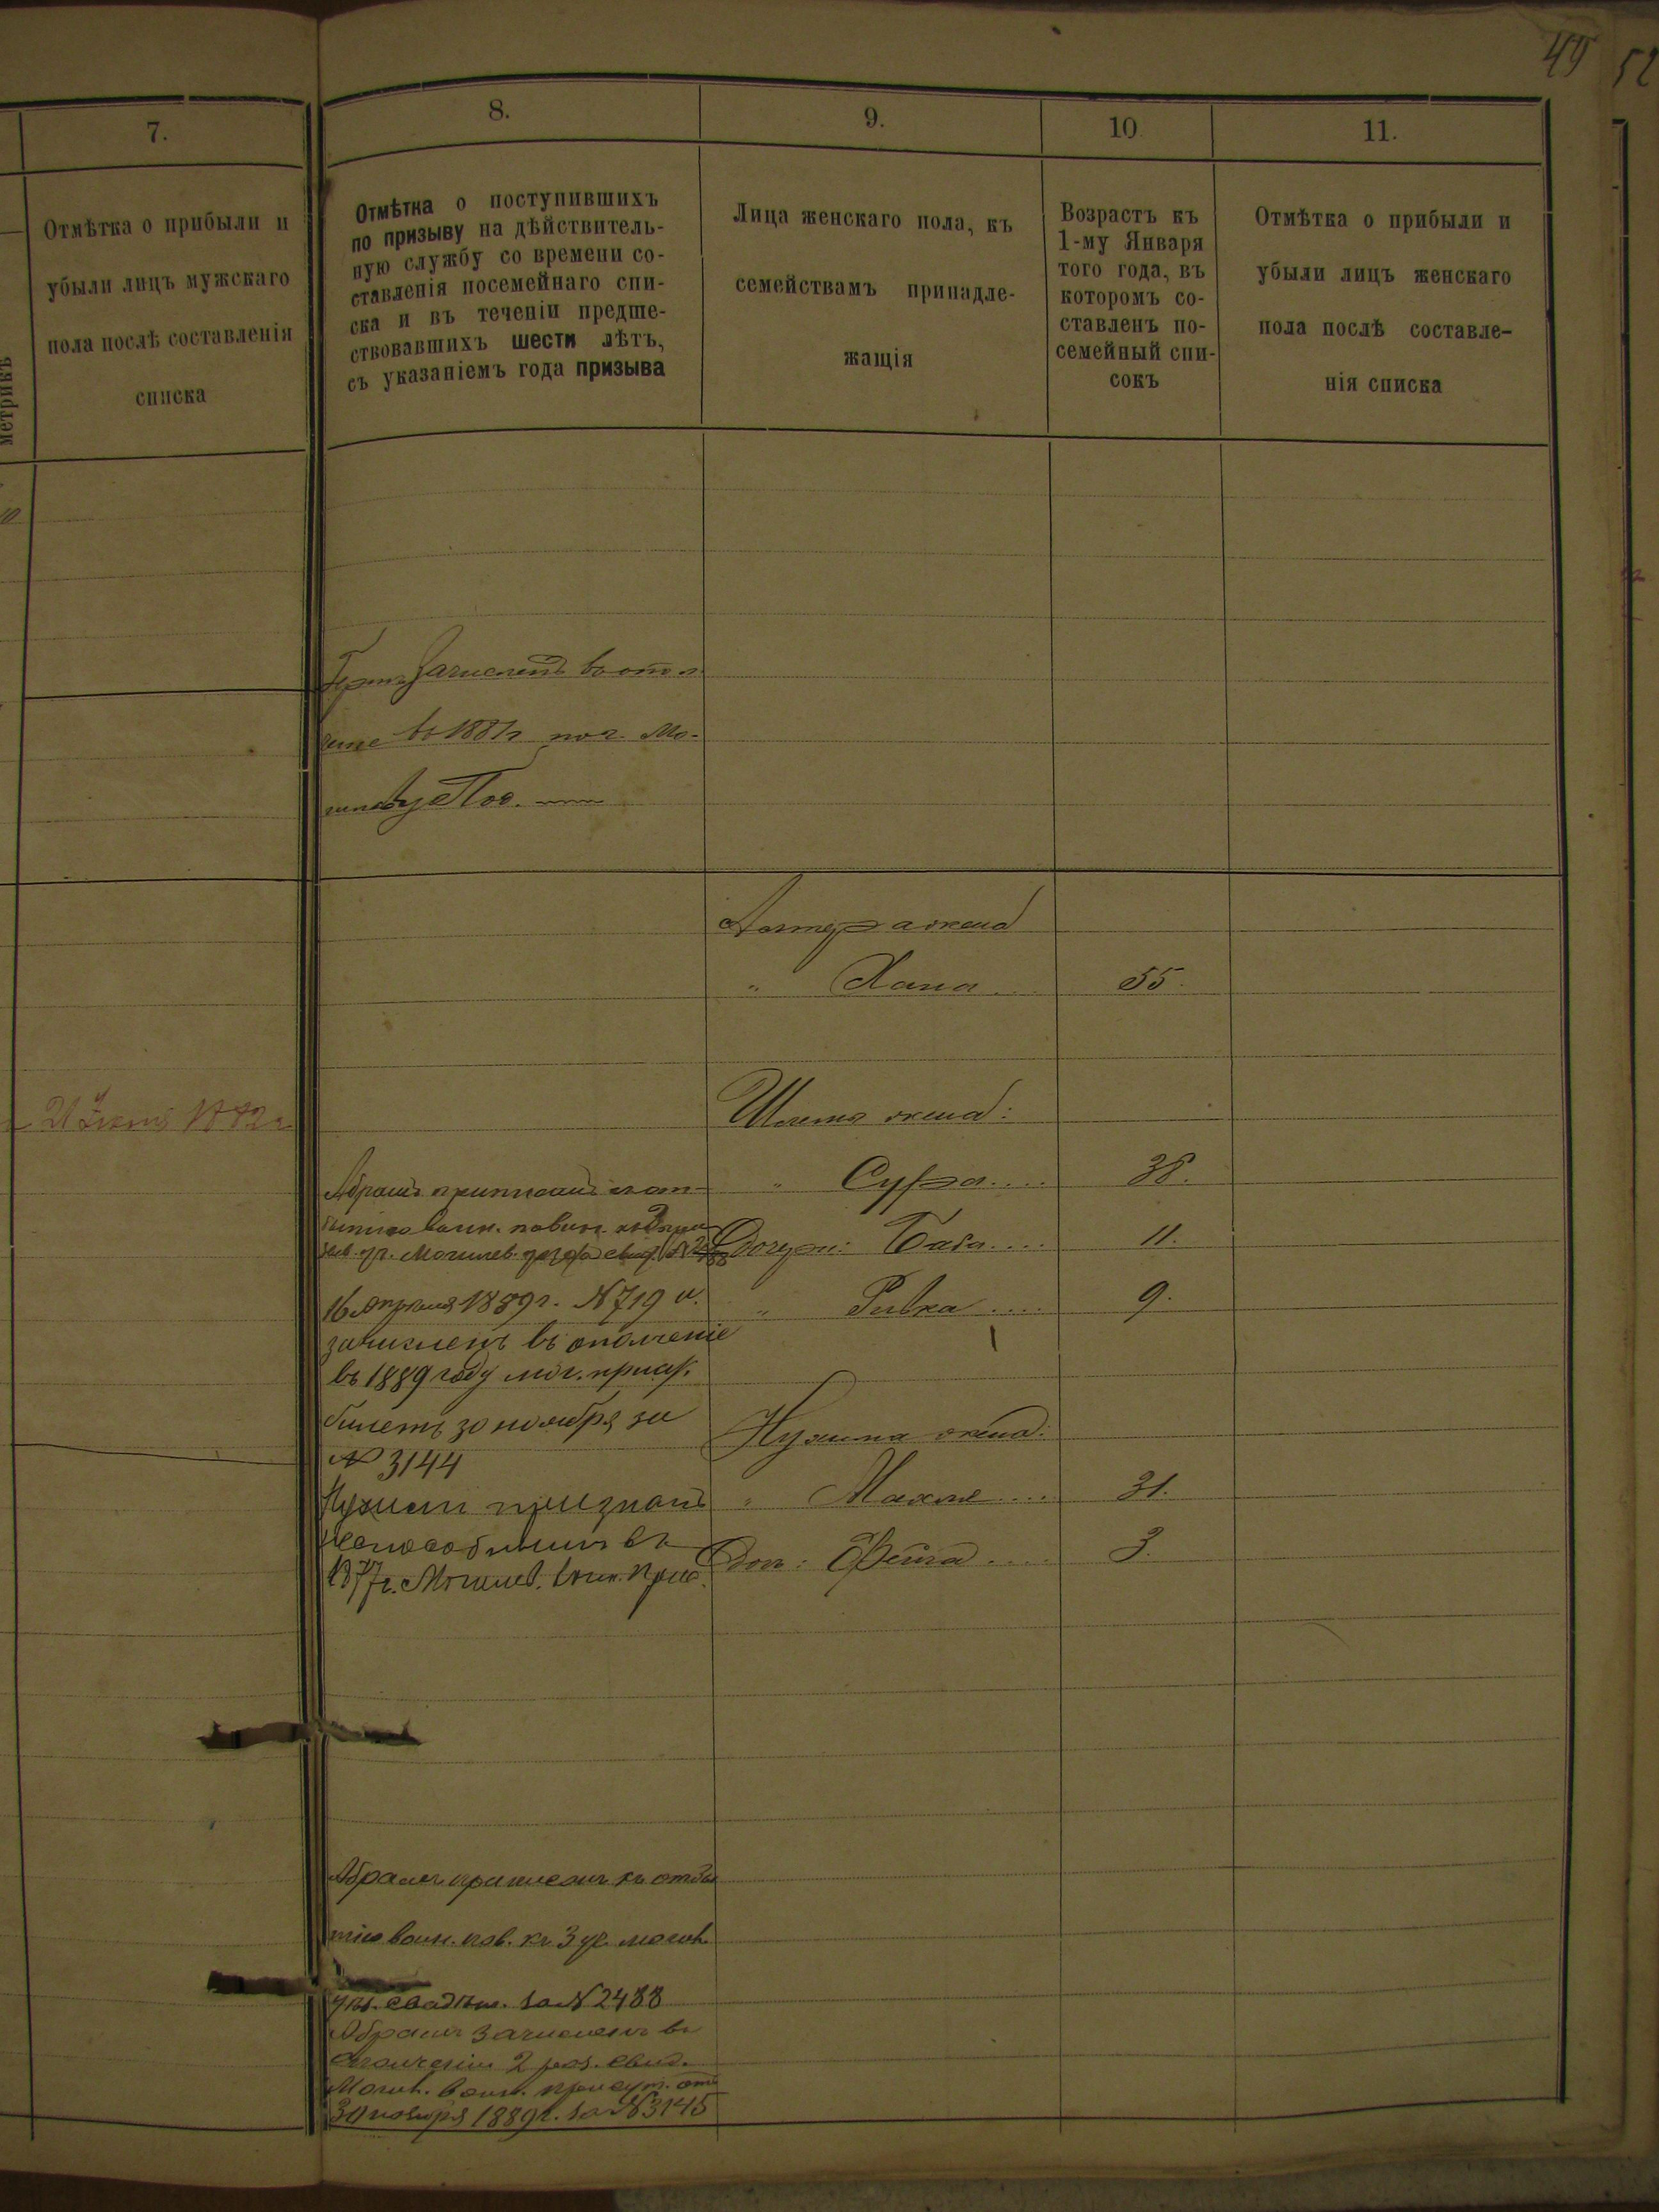 49 52
7.
8.
9.
10
11.
Отмѣтка о прибыли и
убыли лицъ мужскаго
пола послѣ составленія
списка
метрикъ
Отмѣтка о поступившихъ
по призыву на дѣйствитель-
ную службу со времени со-
ставленія посемейнаго спи-
ска и въ теченіи предше-
ствовавшихъ шести лѣтъ,
съ указаніемъ года призыва
Лица женскаго пола, къ
семействамъ принадле-
жащія
Возрастъ къ
1-му Января
того года, въ
которомъ со-
ставленъ по-
семейный спи-
сокъ
Отмѣтка о прибыли и
убыли лицъ женскаго
пола послѣ составле-
нія списка
зачисленъ въ опол
чение въ 1881г по г. Мо-
жена
" Хана 55.
1882г
жена:
" Сура.... 38.
Абрамъ приписанъ къ от-
воин. повин.
уч. Могилев.
Дочери: Бася.... 11.
16 Апрѣля 1889г. N 719 и
" Ривка.... 9.
зачисленъ въ ополченіе
въ 1889 году мог. присут.
билетъ 30 ноября за
N 3144
Нухима жена:
Нухим признанъ
" Махля... 31.
неспособнымъ въ
1877г. Могилев. воин. прис.
доч: Фейга.... 3.
Абрамъ приписанъ къ отбы
тію воин. пов. къ 3 уч. могил.
N 2488
Абрамъ зачисленъ въ
ополченіи 2 раз. свид.
Могил. воин. присут. отъ
30 ноября 1889г. за N 3145